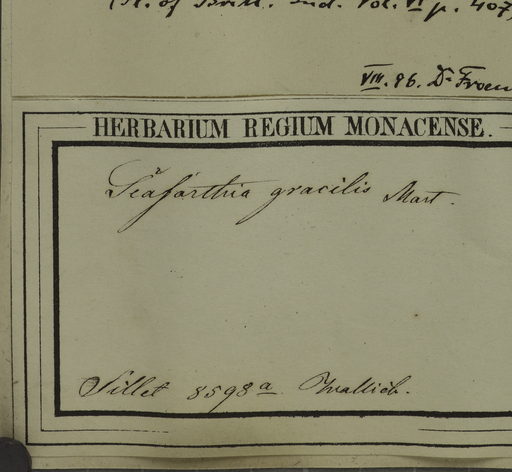 (Fl. of Brit. Ind. Vol. VI p. 407)
VIII. 96. Dr
HERBARIUM REGIUM MONACENSE.
Seaforthia gracilis Mart.
Sillet 8598a Wallich.